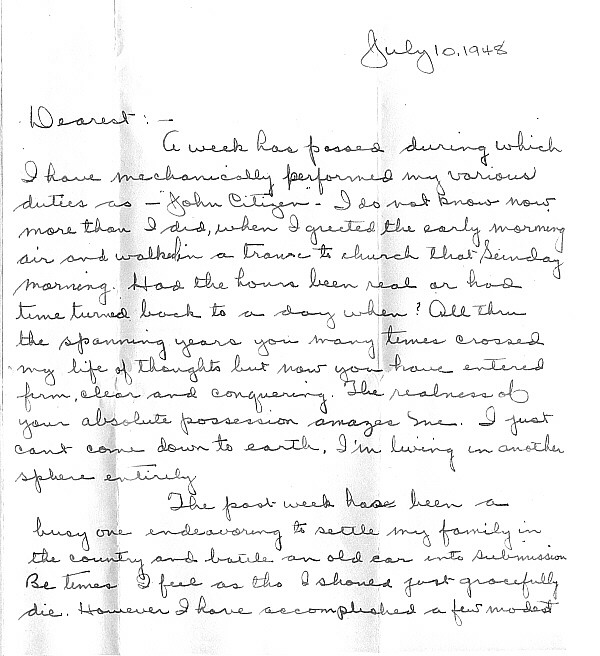 July 10, 1948
Dearest: -
A week has passed during which
I have mechanically performed my various
duties as - "John Citizen" - I do not know now
more than I did, when I greeted the early morning
air and walked in a trance to church that Sunday
morning. Had the hours been real or had
time turned back to a day when? All thru
the spanning years you many times crossed
my life of thoughts but now you have entered
firm, clear and conquering. The realness of
your absolute possession amazes me. I just
cant come down to earth, I'm living in another
sphere entirely
The past week has been a
busy one endeavoring to settle my family in
the country and battle an old car into submission
Be times I feel as tho I should just gracefully
die. However I have accomplished a few modest